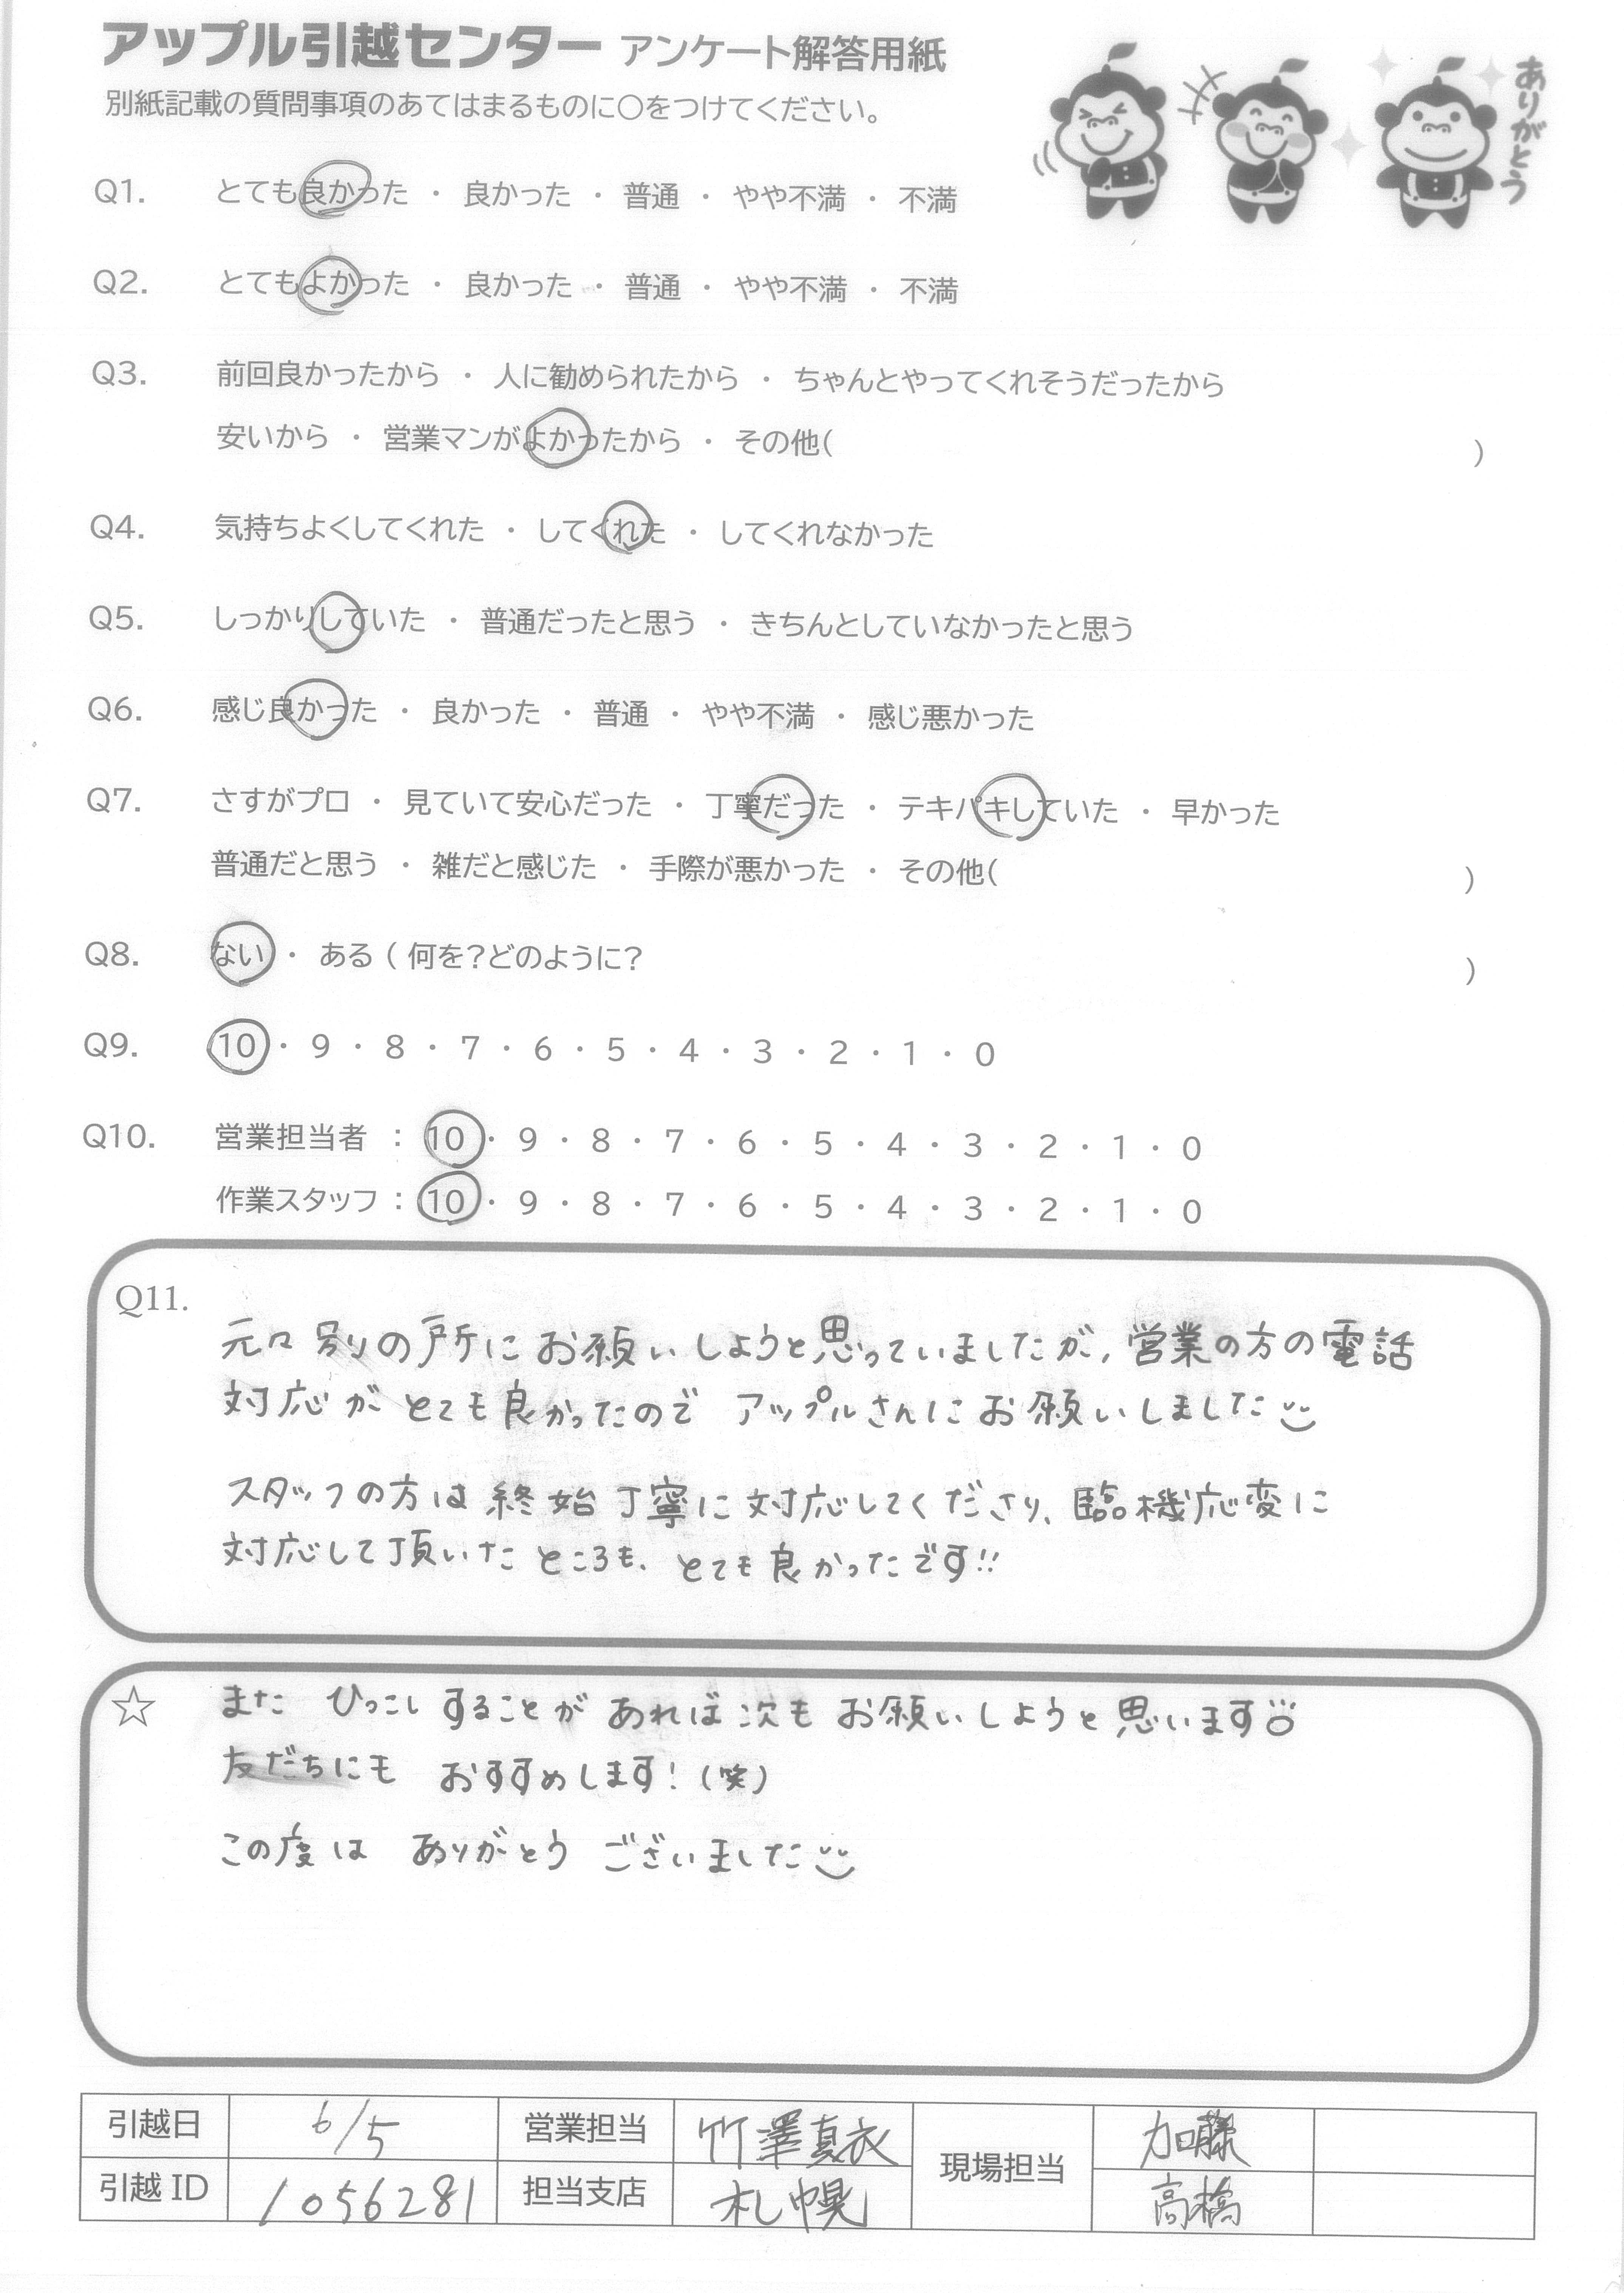 アップル引越センター アンケート解答用紙
別紙記載の質問事項のあてはまるものに○をつけてください。
ありがとう
Q1. とても良かった ・ 良かった ・ 普通 ・ やや不満 ・ 不満
Q2. とてもよかった ・ 良かった ・ 普通 ・ やや不満 ・ 不満
Q3. 前回良かったから ・ 人に勧められたから ・ ちゃんとやってくれそうだったから
安いから ・ 営業マンがよかったから ・ その他( )
Q4. 気持ちよくしてくれた ・ してくれた ・ してくれなかった
Q5. しっかりしていた ・ 普通だったと思う ・ きちんとしていなかったと思う
Q6. 感じ良かった ・ 良かった ・ 普通 ・ やや不満 ・ 感じ悪かった
Q7. さすがプロ ・ 見ていて安心だった ・ 丁寧だった ・ テキパキしていた ・ 早かった
普通だと思う ・ 雑だと感じた ・ 手際が悪かった ・ その他( )
Q8. ない ・ ある ( 何を?どのように? )
Q9. 10 ・ 9 ・ 8 ・ 7 ・ 6 ・ 5 ・ 4 ・ 3 ・ 2 ・ 1 ・ 0
Q10. 営業担当者 : 10 ・ 9 ・ 8 ・ 7 ・ 6 ・ 5 ・ 4 ・ 3 ・ 2 ・ 1 ・ 0
作業スタッフ : 10 ・ 9 ・ 8 ・ 7 ・ 6 ・ 5 ・ 4 ・ 3 ・ 2 ・ 1 ・ 0
Q11.
元々別の所にお願いしようと思っていましたが、営業の方の電話
対応がとても良かったので アップルさんにお願いしました
スタッフの方は終始丁寧に対応してくださり、臨機応変に
対応して頂いたところも、とても良かったです!!
☆ また ひっこしすることがあれば次もお願いしようと思います
友だちにも おすすめします!(笑)
この度は ありがとう ございました
引越日 6/5 営業担当 竹澤真衣 現場担当 加藤
引越ID 1056281 担当支店 札幌 高橋